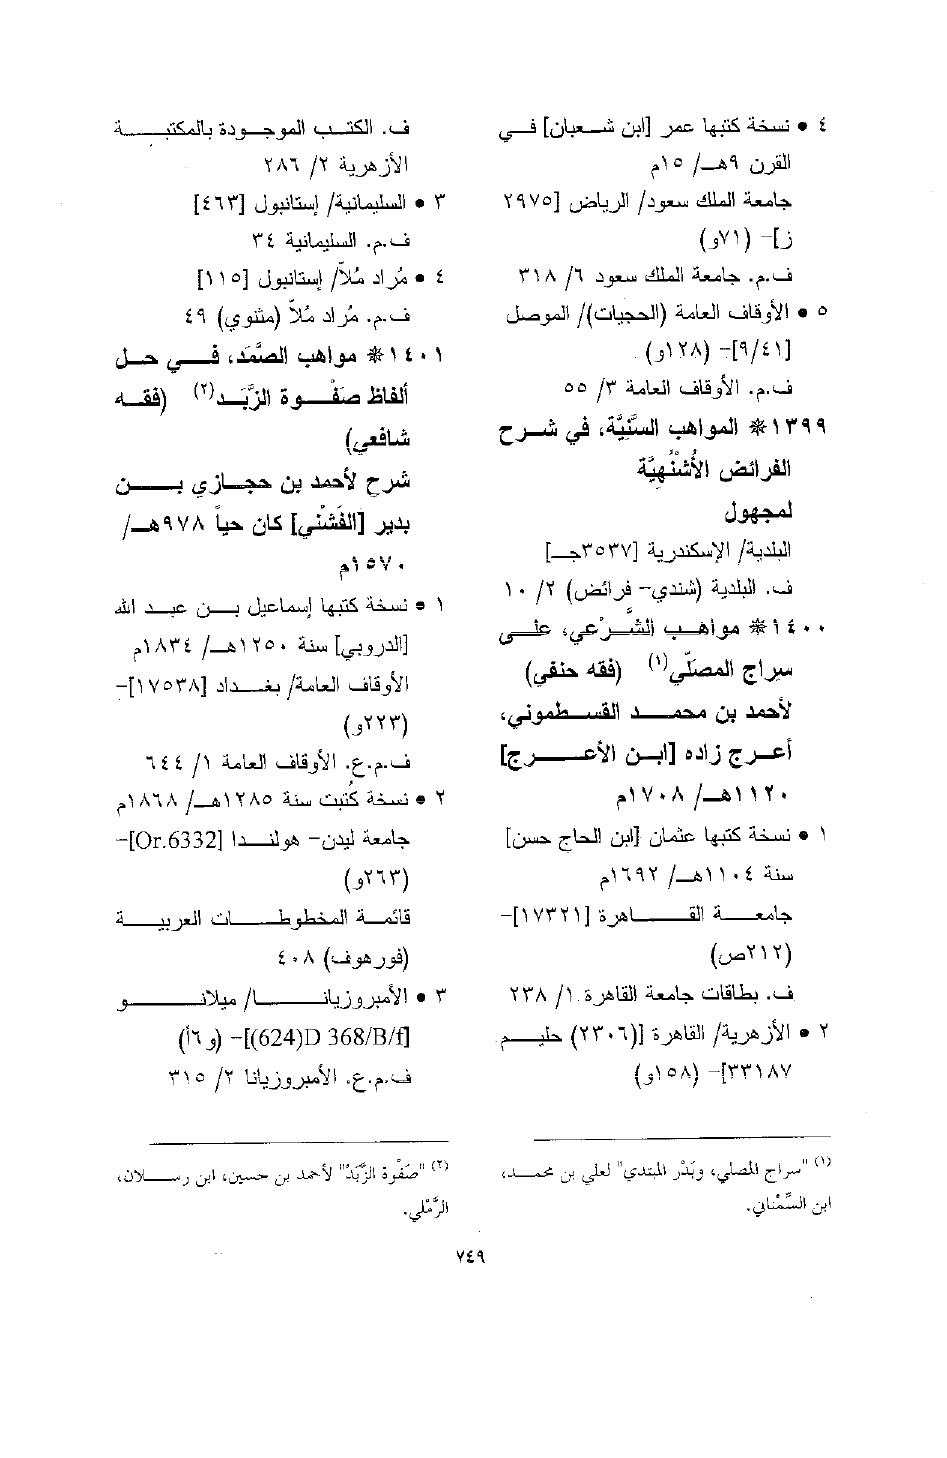 ٤ • نسخة كتبها عمر [ابن شعبان] في
القرن ٩هـ/ ١٥م
جامعة الملك سعود/ الرياض [٢٩٧٥
ز]- (٧١و)
ف.م. جامعة الملك سعود ٦/ ٣١٨
٥ • الأوقاف العامة (الحجيات)/ الموصل
[٩/٤١]- (١٢٨و).
ف.م. الأوقاف العامة ٣/ ٥٥
١٣٩٩* المواهب السَّنيَّة، في شرح
الفرائض الأُشْنُهِيَّة
لمجهول
البلدية/ الإسكندرية [٣٥٣٧جـ]
ف. البلدية (شندي- فرائض) ٢/ ١٠
١٤٠٠* مواهب الشَّرْعي، على
سراج المصلّي(١) (فقه حنفي)
لأحمد بن محمد القسطموني،
أعرج زاده [ابن الأعرج]
١١٢٠هـ/ ١٧٠٨م
١ • نسخة كتبها عثمان [ابن الحاج حسن]
سنة ١١٠٤هـ/ ١٦٩٢م
جامعة القاهرة [١٧٣٢١]-
(٢١٢ص)
ف. بطاقات جامعة القاهرة ١/ ٢٣٨
٢ • الأزهرية/ القاهرة [(٢٣٠٦) حليم
٣٣١٨٧]- (١٥٨و)
(١) "سراج المصلي، وبَدْر المبتدي" لعلي بن محمد،
ابن السِّمْناني.
ف. الكتب الموجودة بالمكتبة
الأزهرية ٢/ ٢٨٦
٣ • السليمانية/ إستانبول [٤٦٣]
ف.م. السليمانية ٣٤
٤ • مُراد مُلاّ/ إستانبول [١١٥]
ف.م. مُراد مُلاّ (مثنوي) ٤٩
١٤٠١* مواهب الصَّمَد، في حل
ألفاظ صَفْوة الزَّبَد(٢) (فقه
شافعي)
شرح لأحمد بن حجازي بن
بدير [الفَشْني] كان حياً ٩٧٨هـ/
١٥٧٠م
١ • نسخة كتبها إسماعيل بن عبد الله
[الدروبي] سنة ١٢٥٠هـ/ ١٨٣٤م
الأوقاف العامة/ بغداد [١٧٥٣٨]-
(٢٢٣و)
ف.م.ع. الأوقاف العامة ١/ ٦٤٤
٢ • نسخة كُتبت سنة ١٢٨٥هـ/ ١٨٦٨م
جامعة ليدن- هولندا [Or.6332]-
(٢٦٣و)
قائمة المخطوطات العربية
(فورهوف) ٤٠٨
٣ • الأمبروزيانا/ ميلانو
[(624)D 368/B/f]- (و٦أ)
ف.م.ع. الأمبروزيانا ٢/ ٣١٥
(٢) "صَفْوة الزَّبَدْ" لأحمد بن حسين، ابن رسلان،
الرَّمْلي.
٧٤٩